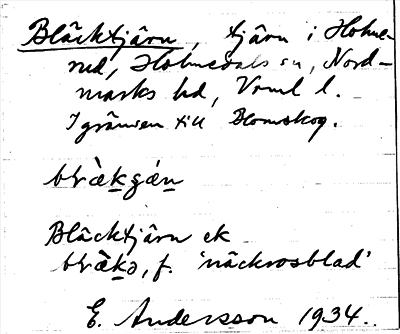 Bläcktjärn, tjärn i Holme-
rud, Holmedals sn, Nord-
marks hd, Vrml l.
I gränsen till Blomskog.
Bläcktjärn ek
f. 'näckrosblad'
E. Andersson 1934.